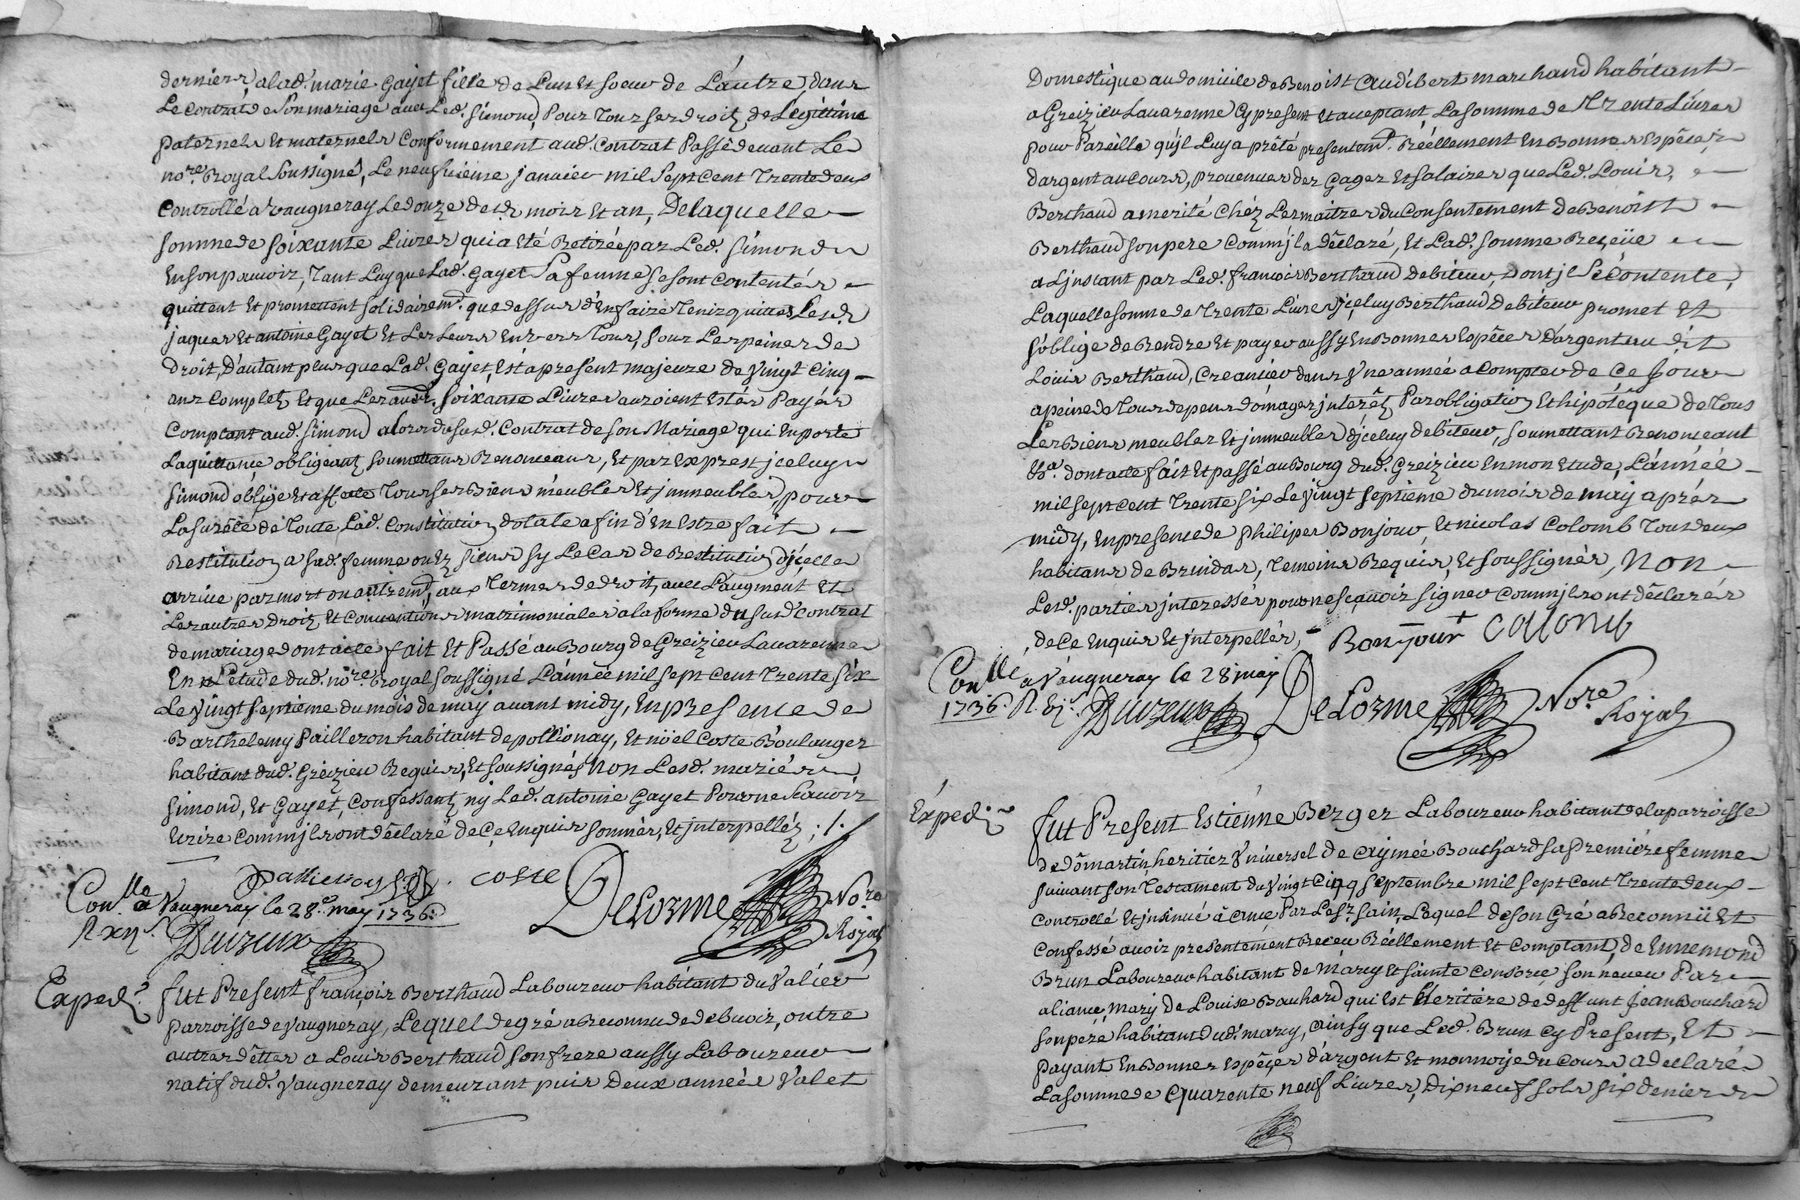 derniers, a lad. marie Gayet fille de L'un et soeur de L'autre, dans
Le contrat de son mariage avec Led. Simond, Pour Tous ses droits de Legitime
paternels et maternels conformement aud. contrat Passé devant Le
no.re Royal soussigné, Le neufvieme janvier mil sept cent trente deux
controllé a vaugneray Le douze desd. mois et an, De laquelle
somme de soixante Livres qui a eté Retirée par Led. simond
en son pouvoir, Tant Luy que Lad. Gayet sa femme se sont contentés
quittent et promettent solidairem.t que dessus d'en faire Tenir quittes Lesd.
jaques et antoine Gayet et Les Leurs envers Tous, sous Les peines de
droit, D'autant plus que Lad. Gayet, est a present majeure de vingt cinq
ans complets et que Les aud. soixante Livres auroient estés Payés
comptant aud. simond alors dusd. contrat de son Mariage qui en porte
Laquittance, obligeant, soumettans Renonceans, et par exprest jceluy
simond oblige et affecte Tous ses Biens meubles et jmmeubles, pour
La sureté de Toute Lad. constitution dotale afin d'en estre fait
Restitution a sad. femme ou ez siens sy Le cas de Restitution d'jcelle
arrive par mort ou autrem.t, aux Termes de droit, avec L'augment et
Les autres droits et conventions matrimoniales a la forme du susd. contrat
de mariage dont acte fait et Passé au Bourg de Greizieu Lavarenne
En L'etude dud. no.re Royal soussigné L'année mil sept cent trente six
Le vingt septieme du mois de may avant midy, En presence de
Barthelemy Pailleron habitant de pollionay, et nöel coste Boulanger
habitant dud. Greizieu Requis, et soussignés non Lesd. mariés
simond, et Gayet, confessants ny Led. antoine Gayet Pour ne scavoir
ecrire comm'jls ont déclaré de ce enquis sommés, et jnterpellés ; /.
Pallieron coste DeLorme No.re Royal
Con.lle a Vaugneray le 28.e may 1736.
R xii s.
Duizeux
Exped.é fut Present françois Berthaud Laboureur habitant du valier
parroisse de vaugneray, Lequel de gré a Reconnu de debvoir, outre
autres dettes a Louis Berthaud son frere aussy Laboureur
natif dud. vaugneray demeurant puis Deux années valet
Domestique au domicile de Benoist Audibert marchand habitant
a Greizieu Lavarenne cy present et acceptant, La somme de Trente Livres
pour Pareille qu'jl Luy a prété presentem.t Réellement en Bonnes Espéces
d'argent au cours, provenues des Gages et salaires que Led. Louis
Berthaud a merité chez Les maitres du consentement de Benoist
Berthaud son pere comm'jl a déclaré, et Lad. somme Reçeüe
a L'jnstant par Led. françois Berthaud debiteur, dont jl se contente,
Laquelle somme de Trente Livres jceluy Berthaud, debiteur promet et
s'oblige de Rendre et payer aussy en Bonnes Espéces d'argent au dit
Loüis Berthaud, creancier dans vne année a compter de ce jour
a peine de Tous depens domages jnterêts Par obligation et hipotêque de Tous
Les Biens meubles et jmmeubles d'jceluy debiteur, soumettant Renonceant
&a. dont acte fait et passé au Bourg dud. Greizieu en mon Etude, L'année
mil sept cent trente six Le vingt septieme du mois de may aprés
midy, en presence de philipes Bonjour, et nicolas colomb Tous deux
habitans de Brindas, Temoins Requis, et soussignés, non
Lesd. parties jnteressées pour ne sçavoir signer comm'jls ont déclarés
de ce enquis et jnterpellés,
Bonjour colomb
Con.lle a Vaugneray le 28 may
1736. R. Duizeux DeLorme No.re Royal
Exped.é fut Present Estienne Berger Laboureur habitant de la parroisse
de dômartin, heritier vniversel de Aymée Bouchard sa Premiére femme
suivant son Testament du vingt cinq septembre mil sept cent trente deux
controllé et jnsinué Par Les, Lequel de son Gré a Reconnü et
confessé avoir presentement Receu Réellement et comptant, de Ennemond
Brun Laboureur habitant de Marcy et sainte consorce son neveu Par
aliance, mary de Louise Bouchard qui est héritiére de deffunt jean Bouchard
son pere habitant dud. marcy, ainsy que Led. Brun cy Present, et
payant en Bonnes espéces d'argent et monnoye du cours a declaré
La somme de Quarente neuf Livres, Dix neuf sols six deniers